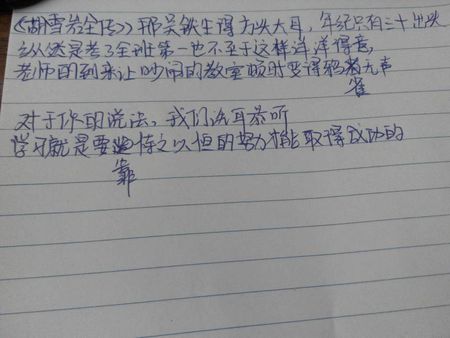 《胡雪岩全传》那吴铁生得方头大耳,年纪只有三十出头
纵然是考了全班第一也不至于这样洋洋得意,
老师的到来让吵闹的教室顿时变得鸦雀无声
对于你的说法,我们洗耳恭听
学习就是要靠持之以恒的努力才能取得成功的